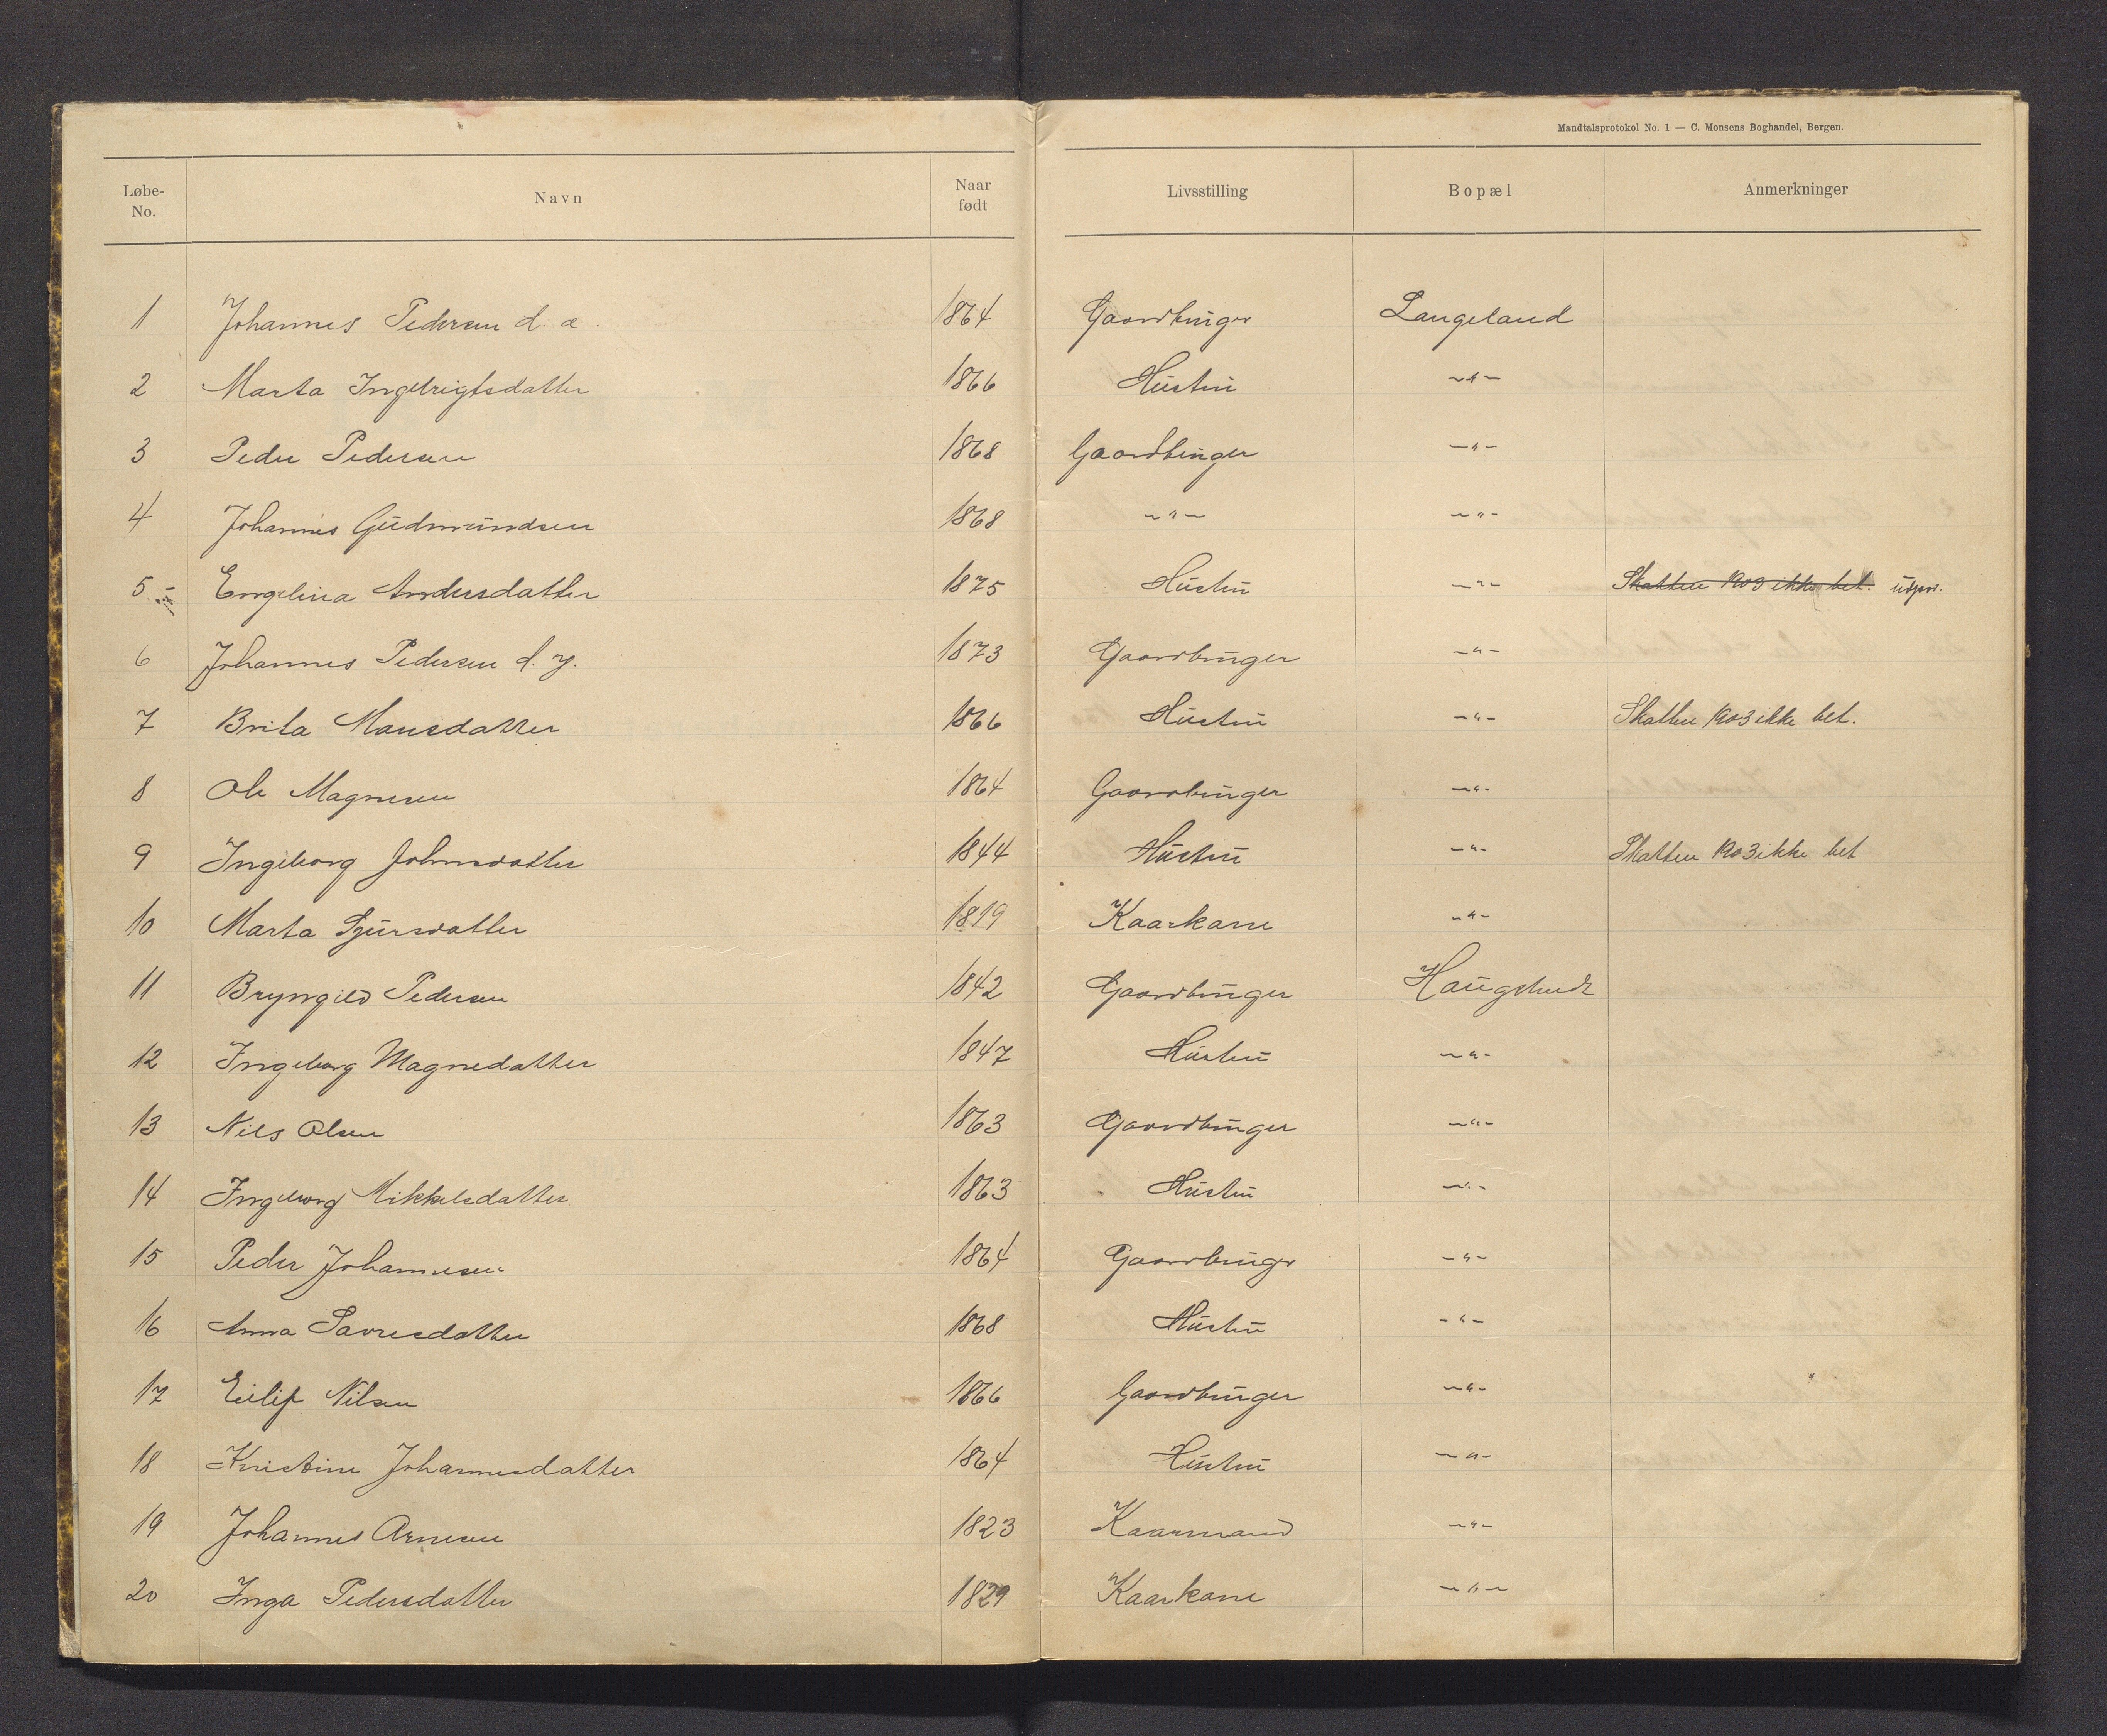 Mandtalsprotokol No. 1 — C. Monsens Boghandel, Bergen.
Løbe-No. Navn Naar født Livsstilling Bopæl Anmerkninger
1 Johannes Pedersen d. æ. 1864 Gaardbruger Langeland
2 Marta Ingebrigtsdatter 1866 Hustru —"—
3 Peder Pedersen 1868 Gaardbruger —"—
4 Johannes Gudmundsen 1868 —"— —"—
5 Engelina Andersdatter 1875 Hustru —"— Skatten 1903 ikke bet.
6 Johannes Pedersen d. y. 1873 Gaardbruger —"—
7 Brita Mansdatter 1866 Hustru —"— Skatten 1903 ikke bet.
8 Ole Magnesen 1864 Gaardbruger —"—
9 Ingeborg Johnsdatter 1844 Hustru —"— Skatten 1903 ikke bet
10 Marta Sjursdatter 1819 Kaarkone —"—
11 Bryngild Pedersen 1842 Gaardbruger
12 Ingeborg Magnedatter 1847 Hustru —"—
13 Nils Olsen 1863 Gaardbruger —"—
14 Ingeborg Mikkelsdatter 1863 Hustru —"—
15 Peder Johannesen 1864 Gaardbruger —"—
16 Anna Saveesdatter 1868 Hustru —"—
17 Eilif Nilsen 1866 Gaardbruger —"—
18 Kristine Johannesdatter 1864 Hustru —"—
19 Johannes Arnesen 1823 Kaarmand —"—
20 Inga Pedersdatter 1829 Kaarkone —"—